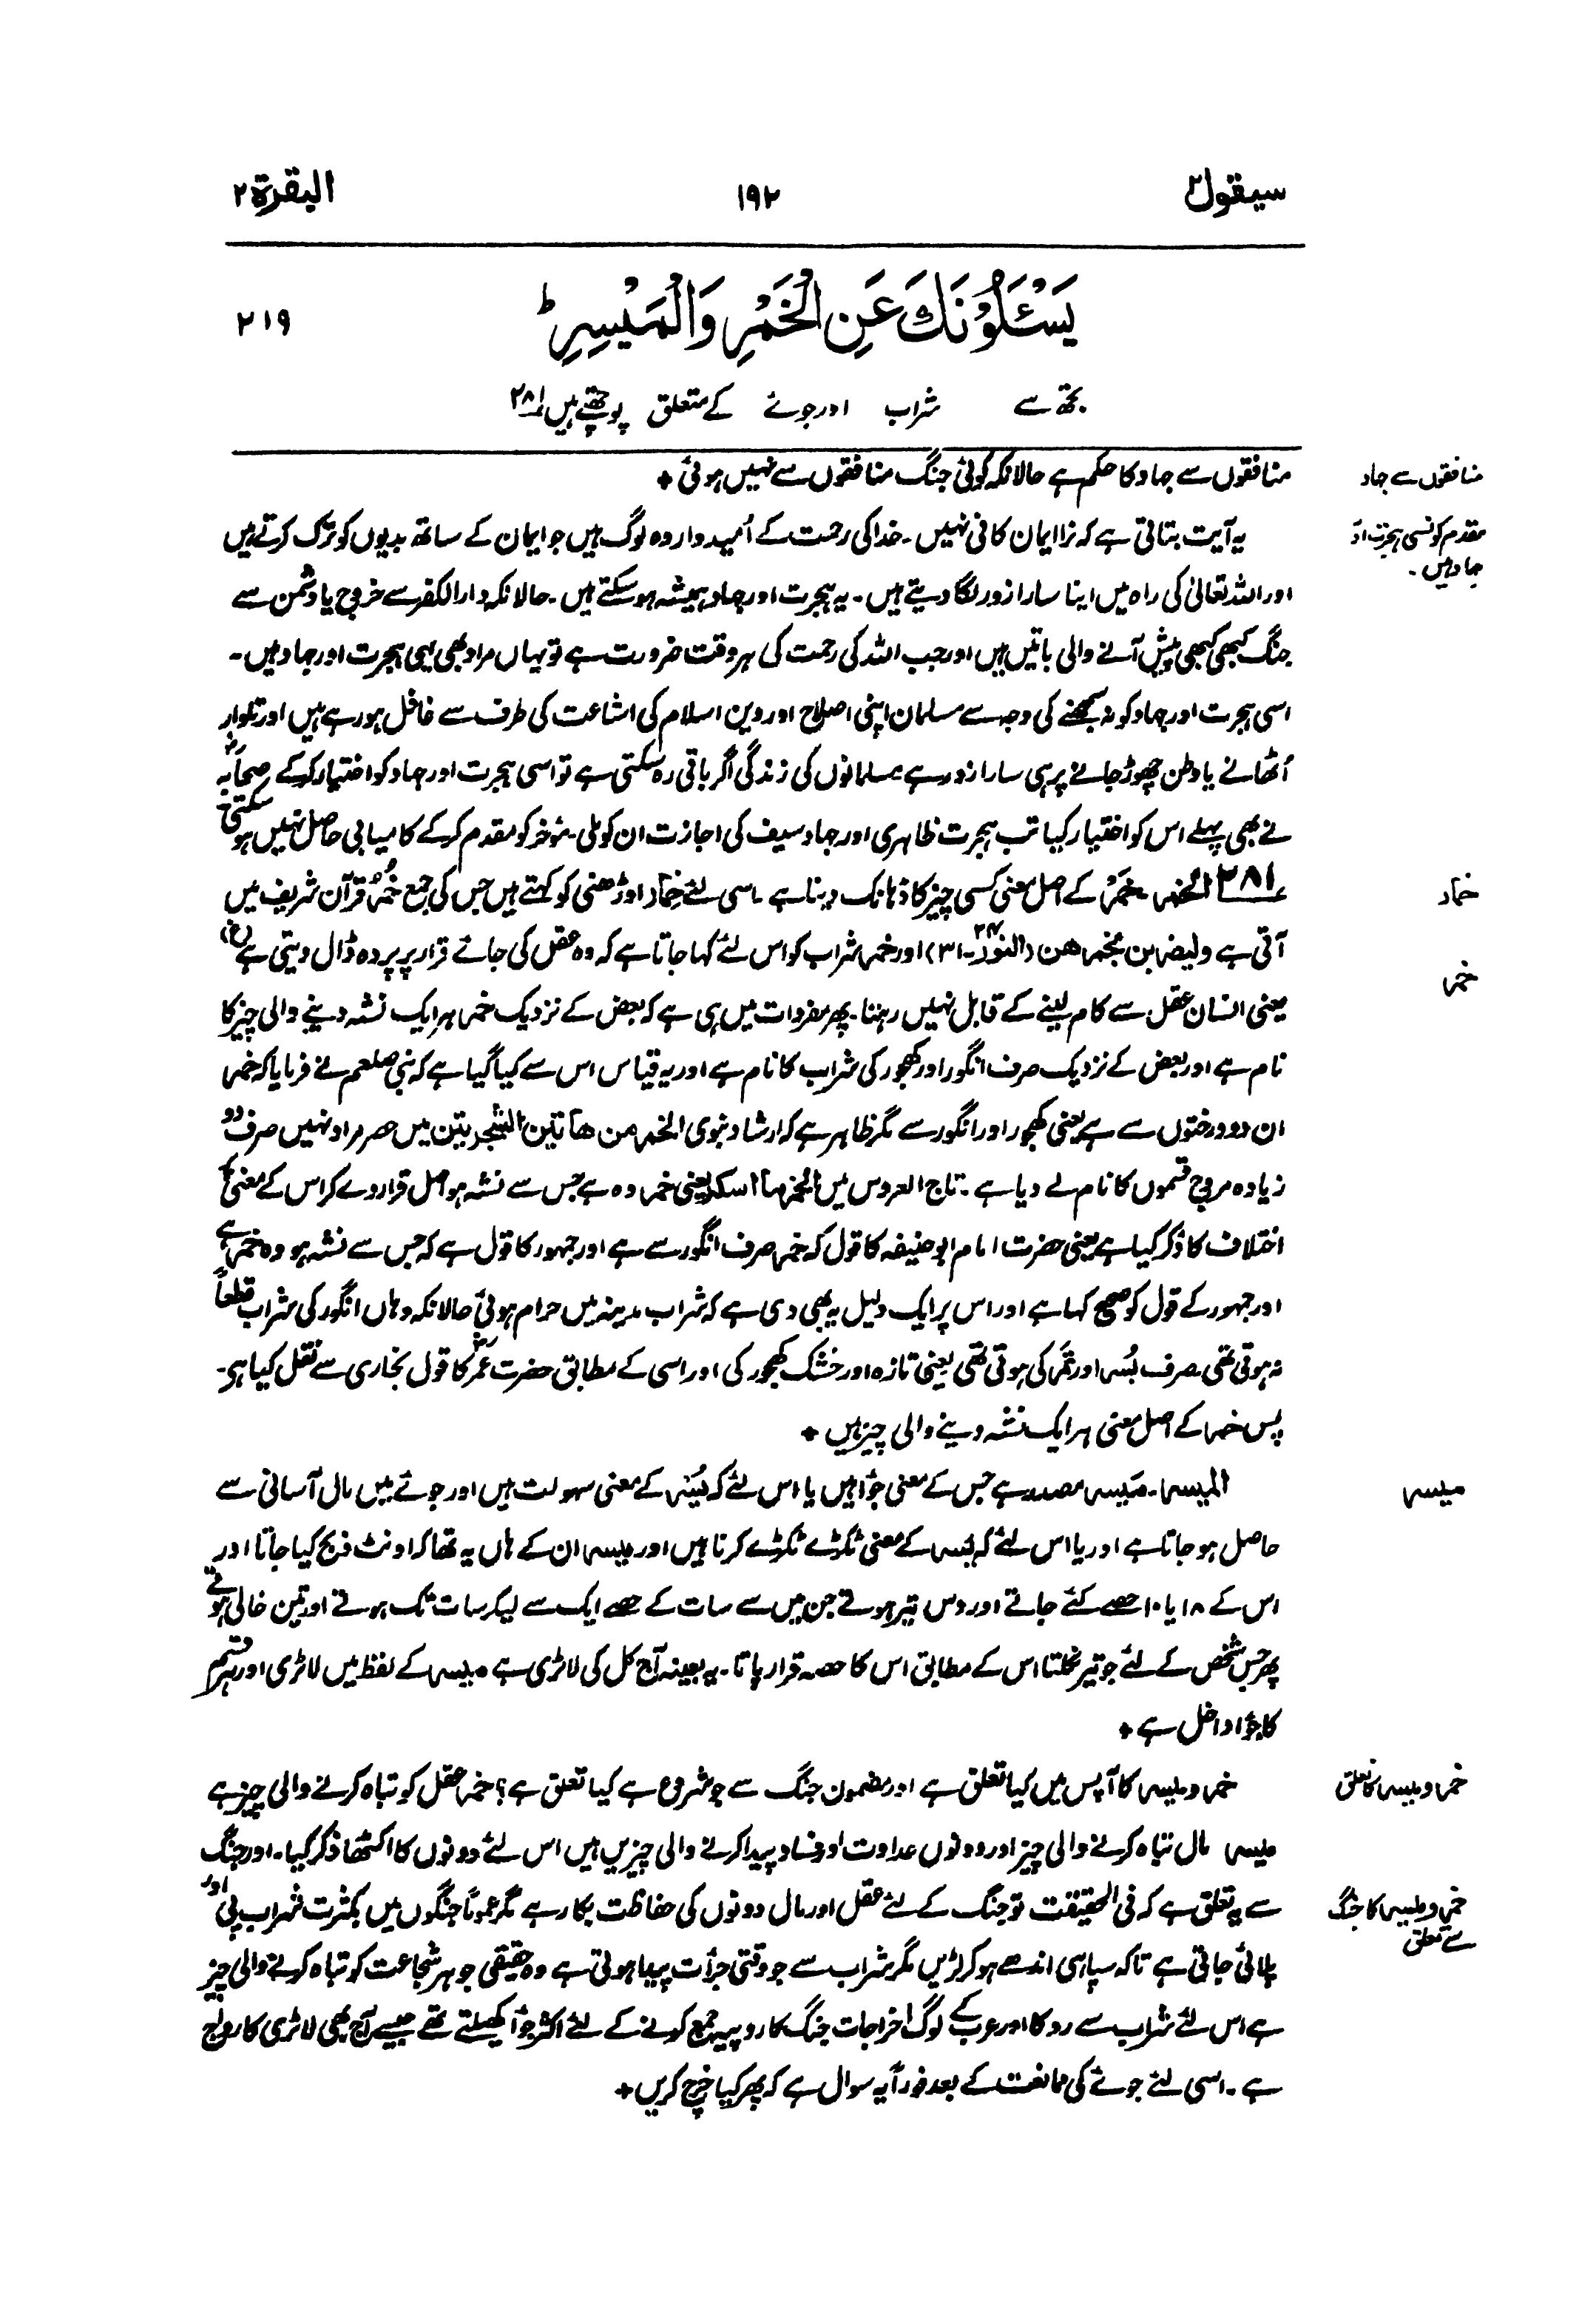 سیقول ۲
۱۹۲
البقرة ۲
یَسْـَٔلُوْنَكَ عَنِ الْخَمْرِ وَالْمَیْسِرِ ؕ
۲۱۹
تجھ سے شراب اور جوئے کے متعلق پوچھتے ہیں ۲۸۱
منافقوں سے جہاد کا حکم ہے حالانکہ کوئی جنگ منافقوں سے نہیں ہوئی +
منافقوں سے جہاد
یہ آیت بتاتی ہے کہ نرا ایمان کافی نہیں۔ خدا کی رحمت کے اُمیدوار وہ لوگ ہیں جو ایمان کے ساتھ بدیوں کو ترک کرتے ہیں
مقدم کونسی ہجرت اور
جہاد ہیں۔
اور اللہ تعالیٰ کی راہ میں اپنا سارا زور لگا دیتے ہیں۔ یہ ہجرت اور جہاد ہمیشہ ہو سکتے ہیں۔ حالانکہ دارالکفر سے خروج یا دشمن سے
جنگ کبھی کبھی پیش آنے والی باتیں ہیں اور جب اللہ کی رحمت کی ہر وقت ضرورت ہے تو یہاں مراد بھی یہی ہجرت اور جہاد ہیں۔
اسی ہجرت اور جہاد کو نہ سمجھنے کی وجہ سے مسلمان اپنی اصلاح اور دین اسلام کی اشاعت کی طرف سے غافل ہو رہے ہیں اور تلوار
اُٹھانے یا وطن چھوڑ جانے پر ہی سارا زور ہے۔ مسلمانوں کی زندگی اگر باقی رہ سکتی ہے تو اسی ہجرت اور جہاد کو اختیار کرکے صحابہؓ
نے بھی پہلے اس کو اختیار کیا تب ہجرت ظاہری اور جہاد سیف کی اجازت ان کو ملی۔ مؤخر کو مقدم کرکے کامیابی حاصل نہیں ہو سکتی
۲۸۱ الخمر۔ خَمْرٌ کے اصل معنی کسی چیز کا ڈہانک دینا ہے۔ اسی لئے خِمَار اوڑھنی کو کہتے ہیں جس کی جمع خُمُرٌ قرآن شریف میں
خمار
آتی ہے ولیضربن بخمرھن (النور ۲۴۔۳۱) اور خمر شراب کو اس لئے کہا جاتا ہے کہ وہ عقل کی جائے قرار پر پردہ ڈال دیتی ہے (غ)
خمر
یعنی انسان عقل سے کام لینے کے قابل نہیں رہتا۔ پھر مفردات میں ہی ہے کہ بعض کے نزدیک خمر ہر ایک نشہ دینے والی چیز کا
نام ہے اور بعض کے نزدیک صرف انگور اور کھجور کی شراب کا نام ہے اور یہ قیاس اس سے کیا گیا ہے کہ نبی صلعم نے فرمایا کہ خمر
ان دو درختوں سے ہے یعنی کھجور اور انگور سے مگر ظاہر ہے کہ ارشاد نبوی الخمر من ھاتین الشجرتین میں حصر مراد نہیں صرف دو
زیادہ مروج قسموں کا نام لے دیا ہے۔ تاج العروس میں الخمر ما اسکر یعنی خمر وہ ہے جس سے نشہ ہو اصل قرار دے کر اس کے معنی میں
اختلاف کا ذکر کیا ہے یعنی حضرت امام ابو حنیفہ کا قول کہ خمر صرف انگور سے ہے اور جمہور کا قول ہے کہ جس سے نشہ ہو وہ خمر ہے
اور جمہور کے قول کو صحیح کہا ہے اور اس پر ایک دلیل یہ بھی دی ہے کہ شراب مدینہ میں حرام ہوئی حالانکہ وہاں انگور کی شراب قطعاً
نہ ہوتی تھی صرف بُسر اور تمر کی ہوتی تھی یعنی تازہ اور خشک کھجور کی اور اسی کے مطابق حضرت عمرؓ کا قول بخاری سے نقل کیا ہے۔
پس خمر کے اصل معنی ہر ایک نشہ دینے والی چیز ہیں +
المیسر۔ مَیسر مصدر ہے جس کے معنی جؤا ہیں یا اس لئے کہ یُسْر کے معنی سہولت ہیں اور جوئے میں مال آسانی سے
میسر
حاصل ہو جاتا ہے اور یا اس لئے کہ یَسر کے معنی ٹکڑے ٹکڑے کرنا ہیں اور میسر ان کے ہاں یہ تھا کہ اونٹ ذبح کیا جاتا اور
اس کے ۱۸ یا ۱۰ حصے کئے جاتے اور دس تیر ہوتے جن میں سے سات کے حصے ایک سے لیکر سات تک ہوتے اور تین خالی ہوتے
پھر جس شخص کے لئے جو تیر نکلتا اس کے مطابق اس کا حصہ قرار پاتا۔ یہ بعینہ آج کل کی لاٹری ہے۔ میسر کے لفظ میں لاٹری اور ہر قسم
کا جؤا داخل ہے +
خمر و میسر کا آپس میں کیا تعلق ہے اور مضمون جنگ سے جو شروع ہے کیا تعلق ہے؟ خمر عقل کو تباہ کرنے والی چیز ہے
خمر و میسر کا تعلق
میسر مال تباہ کرنے والی چیز اور دونوں عداوت اور فساد پیدا کرنے والی چیزیں ہیں اس لئے دونوں کا اکٹھا ذکر کیا۔ اور جنگ
سے یہ تعلق ہے کہ فی الحقیقت تو جنگ کے لئے عقل اور مال دونوں کی حفاظت بکار ہے مگر عموماً جنگوں میں بکثرت شراب پی اور
خمر و میسر کا جنگ
سے تعلق
پلائی جاتی ہے تاکہ سپاہی اندھے ہو کر لڑیں مگر شراب سے جو وقتی جرأت پیدا ہوتی ہے وہ حقیقی جوہر شجاعت کو تباہ کرنے والی چیز
ہے اس لئے شراب سے روکا اور عرب کے لوگ اخراجات جنگ کا روپیہ جمع کرنے کے لئے اکثر جؤا کھیلتے تھے جیسے آج بھی لاٹری کا رواج
ہے۔ اسی لئے جوئے کی ممانعت کے بعد فوراً یہ سوال ہے کہ پھر کیا خرچ کریں +